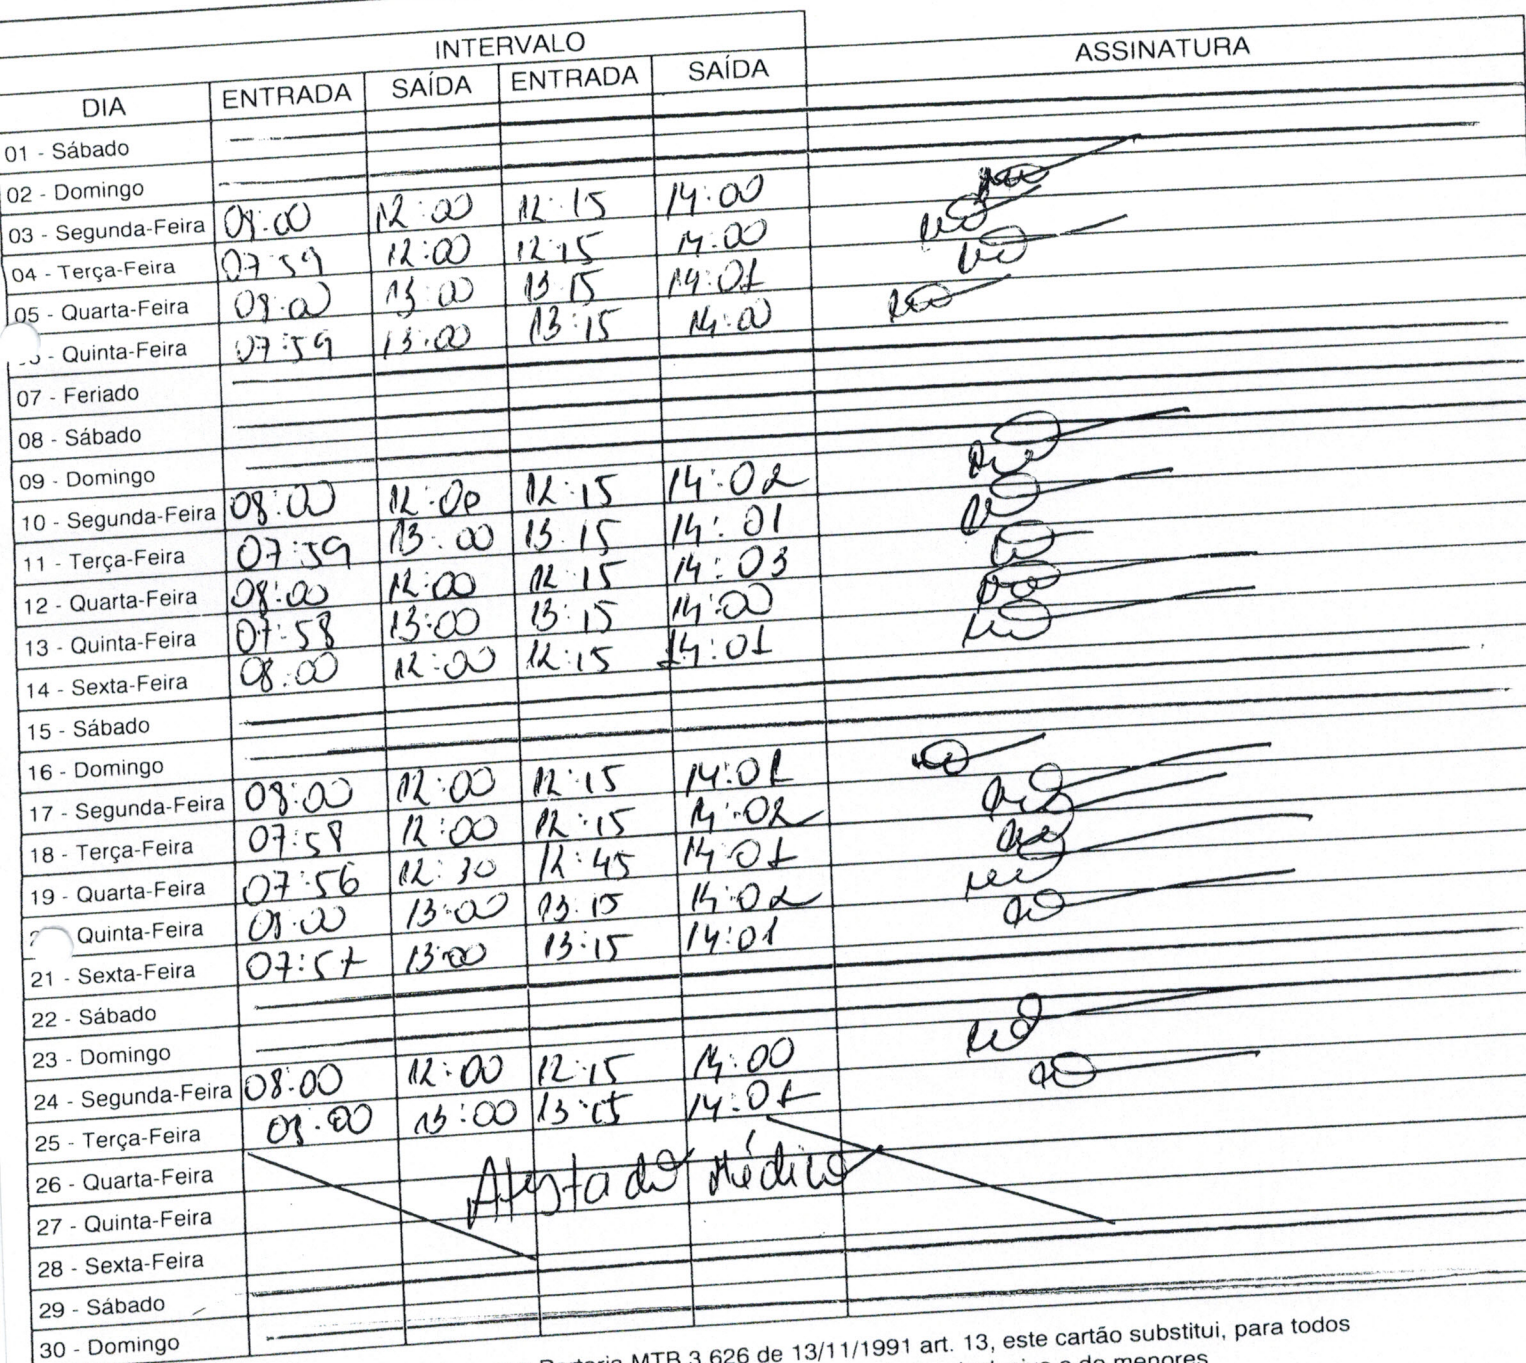 INTERVALO
ASSINATURA
DIA ENTRADA SAÍDA ENTRADA SAÍDA
01 - Sábado
02 - Domingo
03 - Segunda-Feira 08:00 12:00 12:15 14:00
04 - Terça-Feira 07:59 12:00 12:15 14:00
05 - Quarta-Feira 08:00 13:00 13:15 14:01
- Quinta-Feira 07:59 13:00 13:15 14:00
07 - Feriado
08 - Sábado
09 - Domingo
10 - Segunda-Feira 08:00 12:00 12:15 14:02
11 - Terça-Feira 07:59 13:00 13:15 14:01
12 - Quarta-Feira 08:00 12:00 12:15 14:03
13 - Quinta-Feira 07:58 13:00 13:15 14:00
14 - Sexta-Feira 08:00 12:00 12:15 14:01
15 - Sábado
16 - Domingo
17 - Segunda-Feira 08:00 12:00 12:15 14:01
18 - Terça-Feira 07:58 12:00 12:15 14:02
19 - Quarta-Feira 07:56 12:30 12:45 14:01
Quinta-Feira 08:00 13:00 13:15 14:02
21 - Sexta-Feira 07:57 13:00 13:15 14:01
22 - Sábado
23 - Domingo
24 - Segunda-Feira 08:00 12:00 12:15 14:00
25 - Terça-Feira 08:00 13:00 13:15 14:01
26 - Quarta-Feira Atestado Médico
27 - Quinta-Feira
28 - Sexta-Feira
29 - Sábado
30 - Domingo
Portaria MTB 3.626 de 13/11/1991 art. 13, este cartão substitui, para todos
e de menores